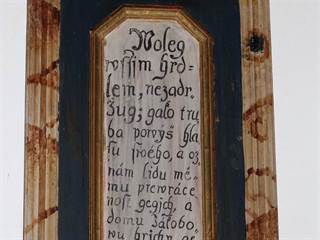 Woleg
wssim hrd-
lem, nezadr-
žug; gako tru
ba powyš hla
su swého, a oz
nám lidu mé-
mu přewráce
nost gegich, a
domu Jákobo-
wu hříchy ge